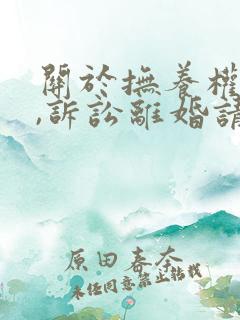 關於撫養權
,訴訟離婚請
原田春奈
未任同意禁止转载